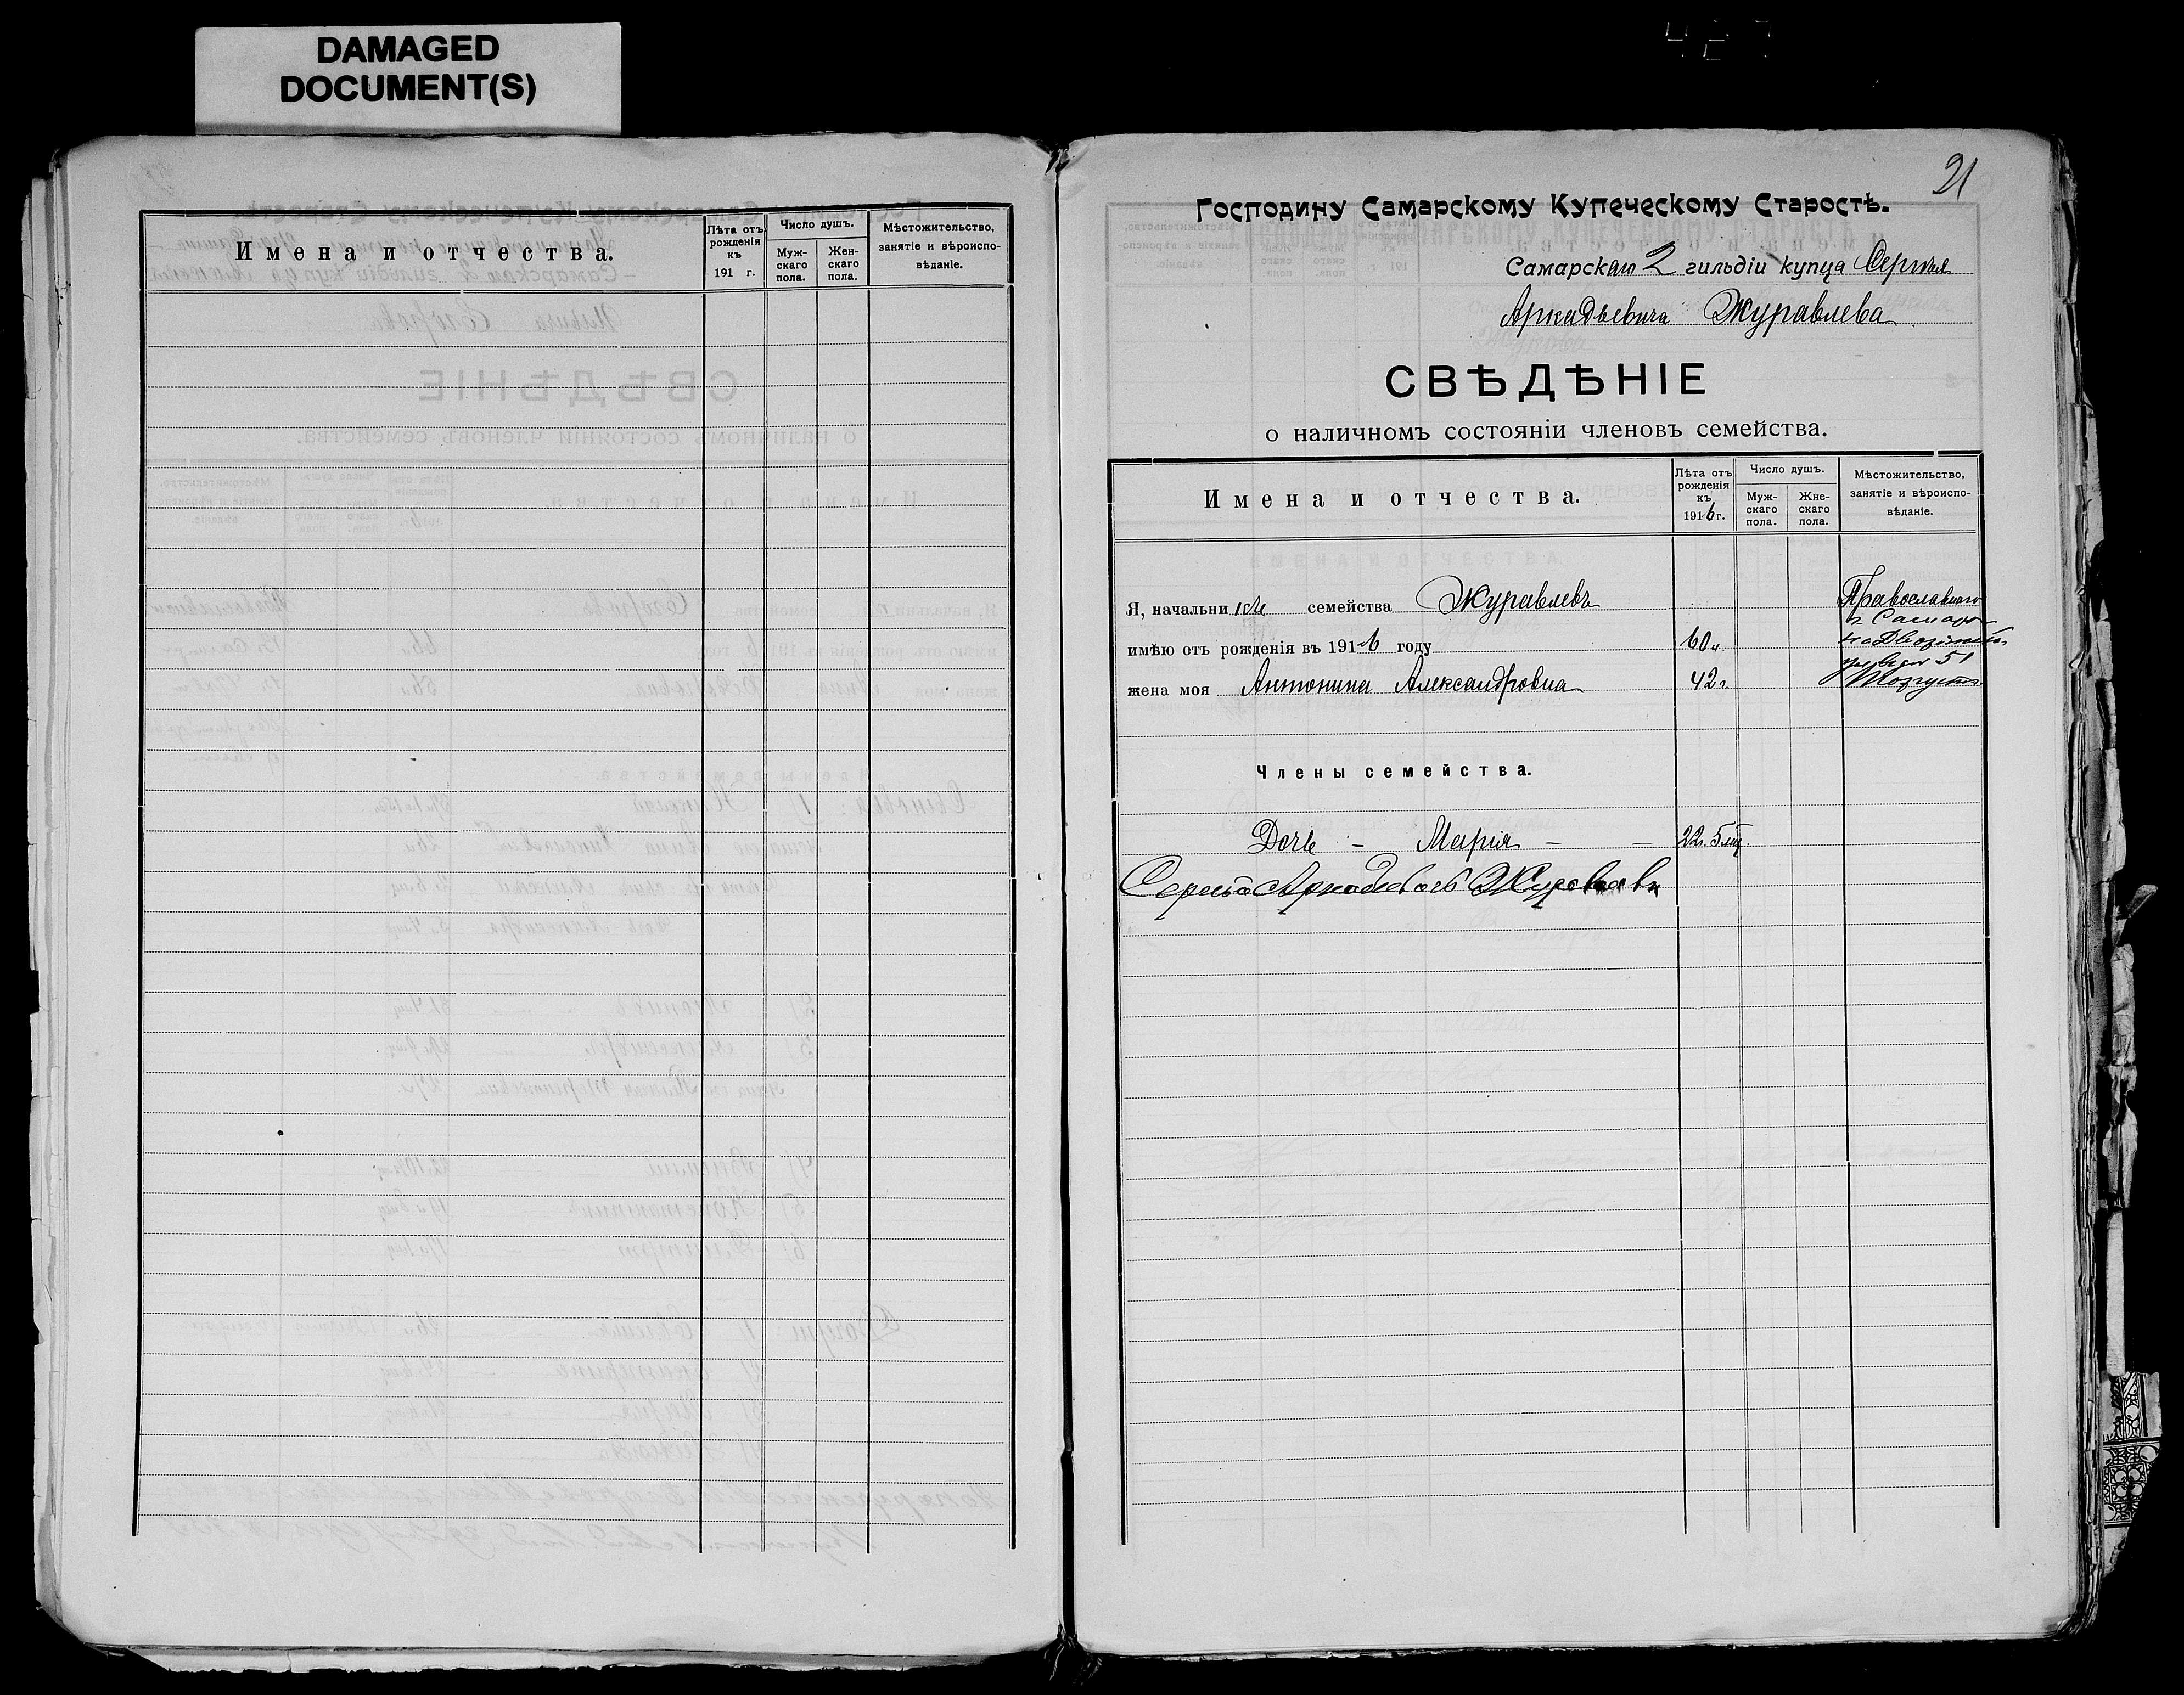 DAMAGED
DOCUMENT(S)
Имена и отчества.
Лѣта отъ рожденія къ 191 г.
Число душъ.
Муж-скаго пола.
Жен-скаго пола.
Мѣстожительство, занятіе и вѣроиспо-вѣданіе.
21
Господину Самарскому Купеческому Старостѣ.
Самарскаго 2 гильдіи купца Сергѣя
Аркадьевича Журавлева
СВѢДѢНІЕ
о наличномъ состояніи членовъ семейства.
Имена и отчества.
Лѣта отъ рожденія къ 1916 г.
Число душъ.
Муж-скаго пола.
Жне-скаго пола.
Мѣстожительство, занятіе и вѣроиспо-вѣданіе.
Я, начальникъ семейства Журавлевъ
Православнаго
въ Самарѣ
имѣю отъ рожденія въ 1916 году 60 л.
на
51
жена моя Антонина Александровна 42 г.
Торгуетъ
Члены семейства.
Дочь - Марія - - 22 г. 5 мц.
Сергѣй Аркадьевичъ Журавлевъ